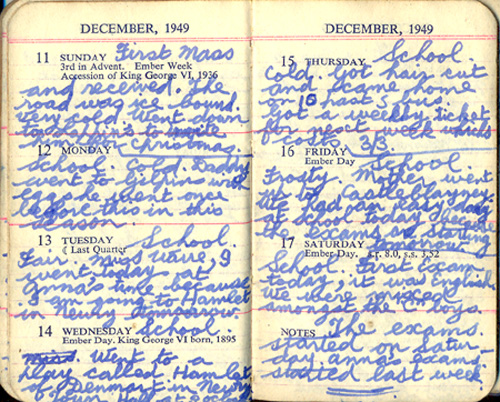 DECEMBER, 1949
11 SUNDAY First Mass
3rd in Advent. Ember Week
Accession of King George VI, 1936
and received. The
road was ice bound.
Very cold. Went down
to to invite
for Christmas.
12 MONDAY
School. Good. Daddy
went to with
he went once
before this in this
season.
13 TUESDAY School.
☾ Last Quarter
Fair. Miss wave, I
went today at
Anna's time because
I am going to Hamlet
in Newry tomorrow.
14 WEDNESDAY School.
Ember Day. King George VI born, 1895
Went to a
play called Hamlet
of Denmark in Newry
Town Hall at
DECEMBER, 1949
15 THURSDAY School.
Cold. Got hair cut
and came home
on 10 past 5 bus
Got a weekly ticket
for next week which
costs 3/3.
16 FRIDAY School.
Ember Day
Frosty Mother went
to Castleblayney.
We had an easy day
at school today because
the exams are starting
tomorrow.
17 SATURDAY
Ember Day. s.r. 8.0, s.s. 3.52
School. First Exam
today, it was English
We were mixed
amongst the C boys.
NOTES The exams
started on Satur
day. Anna's exams
started last week